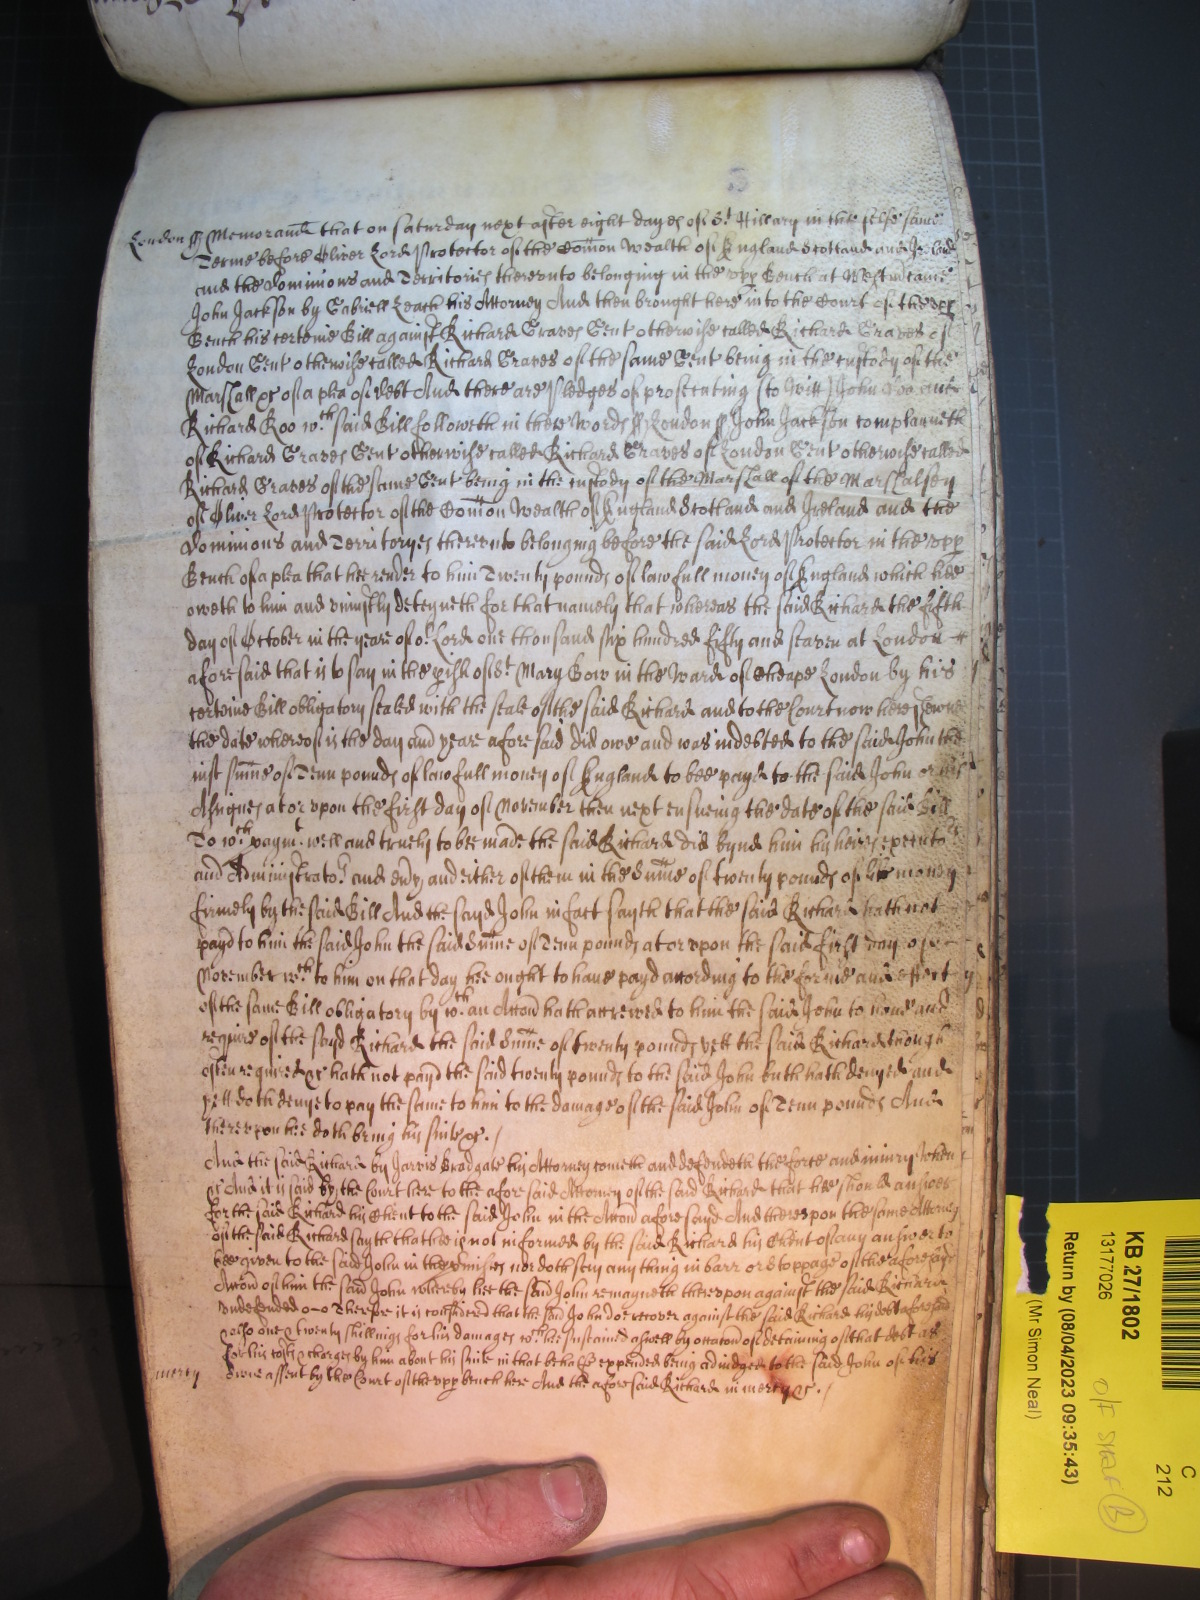 London ss Memorand that on Saturday next after eight dayes of St Hillary in the selfe same
Terme before Oliver Lord Protector of the Comon Wealth of England Scotland and Ireland
and the Dominions and Territories thereunto belonging in the upp Bench at Westm came
John Jackson by Gabriell Leach his Attorney And then brought here into the Court of the upp
Bench his certeine Bill against Richard Graves Gent otherwise called Richard Graves of
London Gent otherwise called Richard Graves of the same Gent being in the custody of the
Marshall &c of a plea of Debt And there are Pledges of prosecuting (to witt) John Doe and
Richard Roo wch said Bill followeth in these words ss London ss John Jackson complaineth
of Richard Graves Gent otherwise called Richard Graves of London Gent otherwise called
Richard Graves of the same Gent being in the custody of the Marshall of the Marshalsey
of Oliver Lord Protector of the Comon Wealth of England Scotland and Ireland and the
Dominions and Territoryes thereunto belonging before the said Lord Protector in the upp
Bench of a plea that hee render to him Twenty pounds of lawfull money of England which hee
oweth to him and uniustly deteyneth for that namely that whereas the said Richard the fifth
day of October in the yeare of or Lord one thousand six hundred fifty and seaven at London
aforesaid that is to say in the pish of St Mary Bow in the Ward of Cheape London by his
certeine Bill obligatory sealed with the seale of the said Richard and to the Court now here shewne
the date whereof is the day and yeare aforesaid did owe and was indebted to the said John the
iust sume of Tenn pounds of lawfull money of England to bee payd to the said John or his
Assignes at or upon the first day of November then next ensueing the date of the said Bill
To wch paymt well and truely to bee made the said Richard did bynd him his heires executors
and Administrators and evry and either of them in the Sume of twenty pounds of like money
firmely by the said Bill And the sayd John in fact sayth that the said Richard hath not
payd to him the said John the said Sume of Tenn pounds at or upon the said first day of
November wch to him on that day hee ought to have payd according to the forme and effect
of the same Bill obligatory by wch an Accon hath accrewed to him the said John to have and
require of the sayd Richard the said Sume of twenty pounds yett the said Richard though
often required &c hath not payd the said twenty pounds to the said John but hath denyed and
yett doth denye to pay the same to him to the damage of the said John of Tenn pounds And
thereupon hee doth bring his suite &c.
And the said Richard by Jarvis Bradgate his Attorney cometh and defendeth the force and iniury when
&c And it is said by the Court here to the aforesaid Attorney of the said Richard that hee should answer
for the said Richard his Client to the said John in the Accon aforesayd And thereupon the same Attorney
of the said Richard sayth that hee is not informed by the said Richard his Client of any answer to
bee given to the said John in the premises nor doth say any thing in barr or stoppage of the aforesayd
Accon of him the said John whereby hee the said John remayneth thereupon against the said Richard
undefended &c Therefore it is considered that the said John doe recover against the said Richard his debt aforesaid
also one & twenty shillings for his damages wch he sustained aswell by occacon of detaining of that debt as
for his costs & charges by him about his suite in that behalf expended being adiudged to the said John of his
mercy owne assent by the Court of the upp bench here And the aforesaid Richard in mercy &c.
KB 27/1802
13177026
Return by (08/04/2023 09:35:43)
(Mr Simon Neal)
C
212